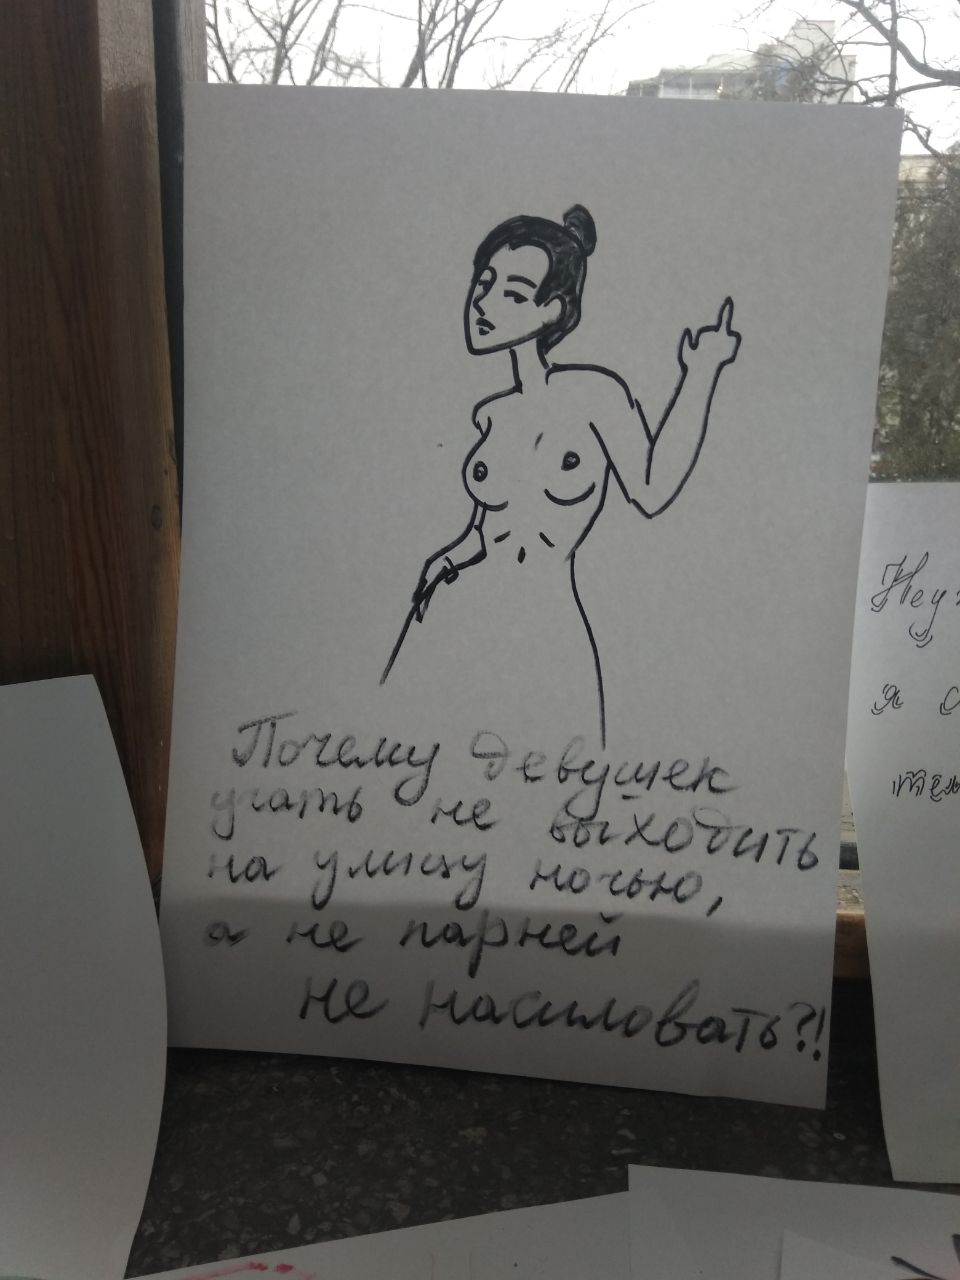 Почему девушек
учать не выходить
на улицу ночью,
а не парней
не насиловать?!
я